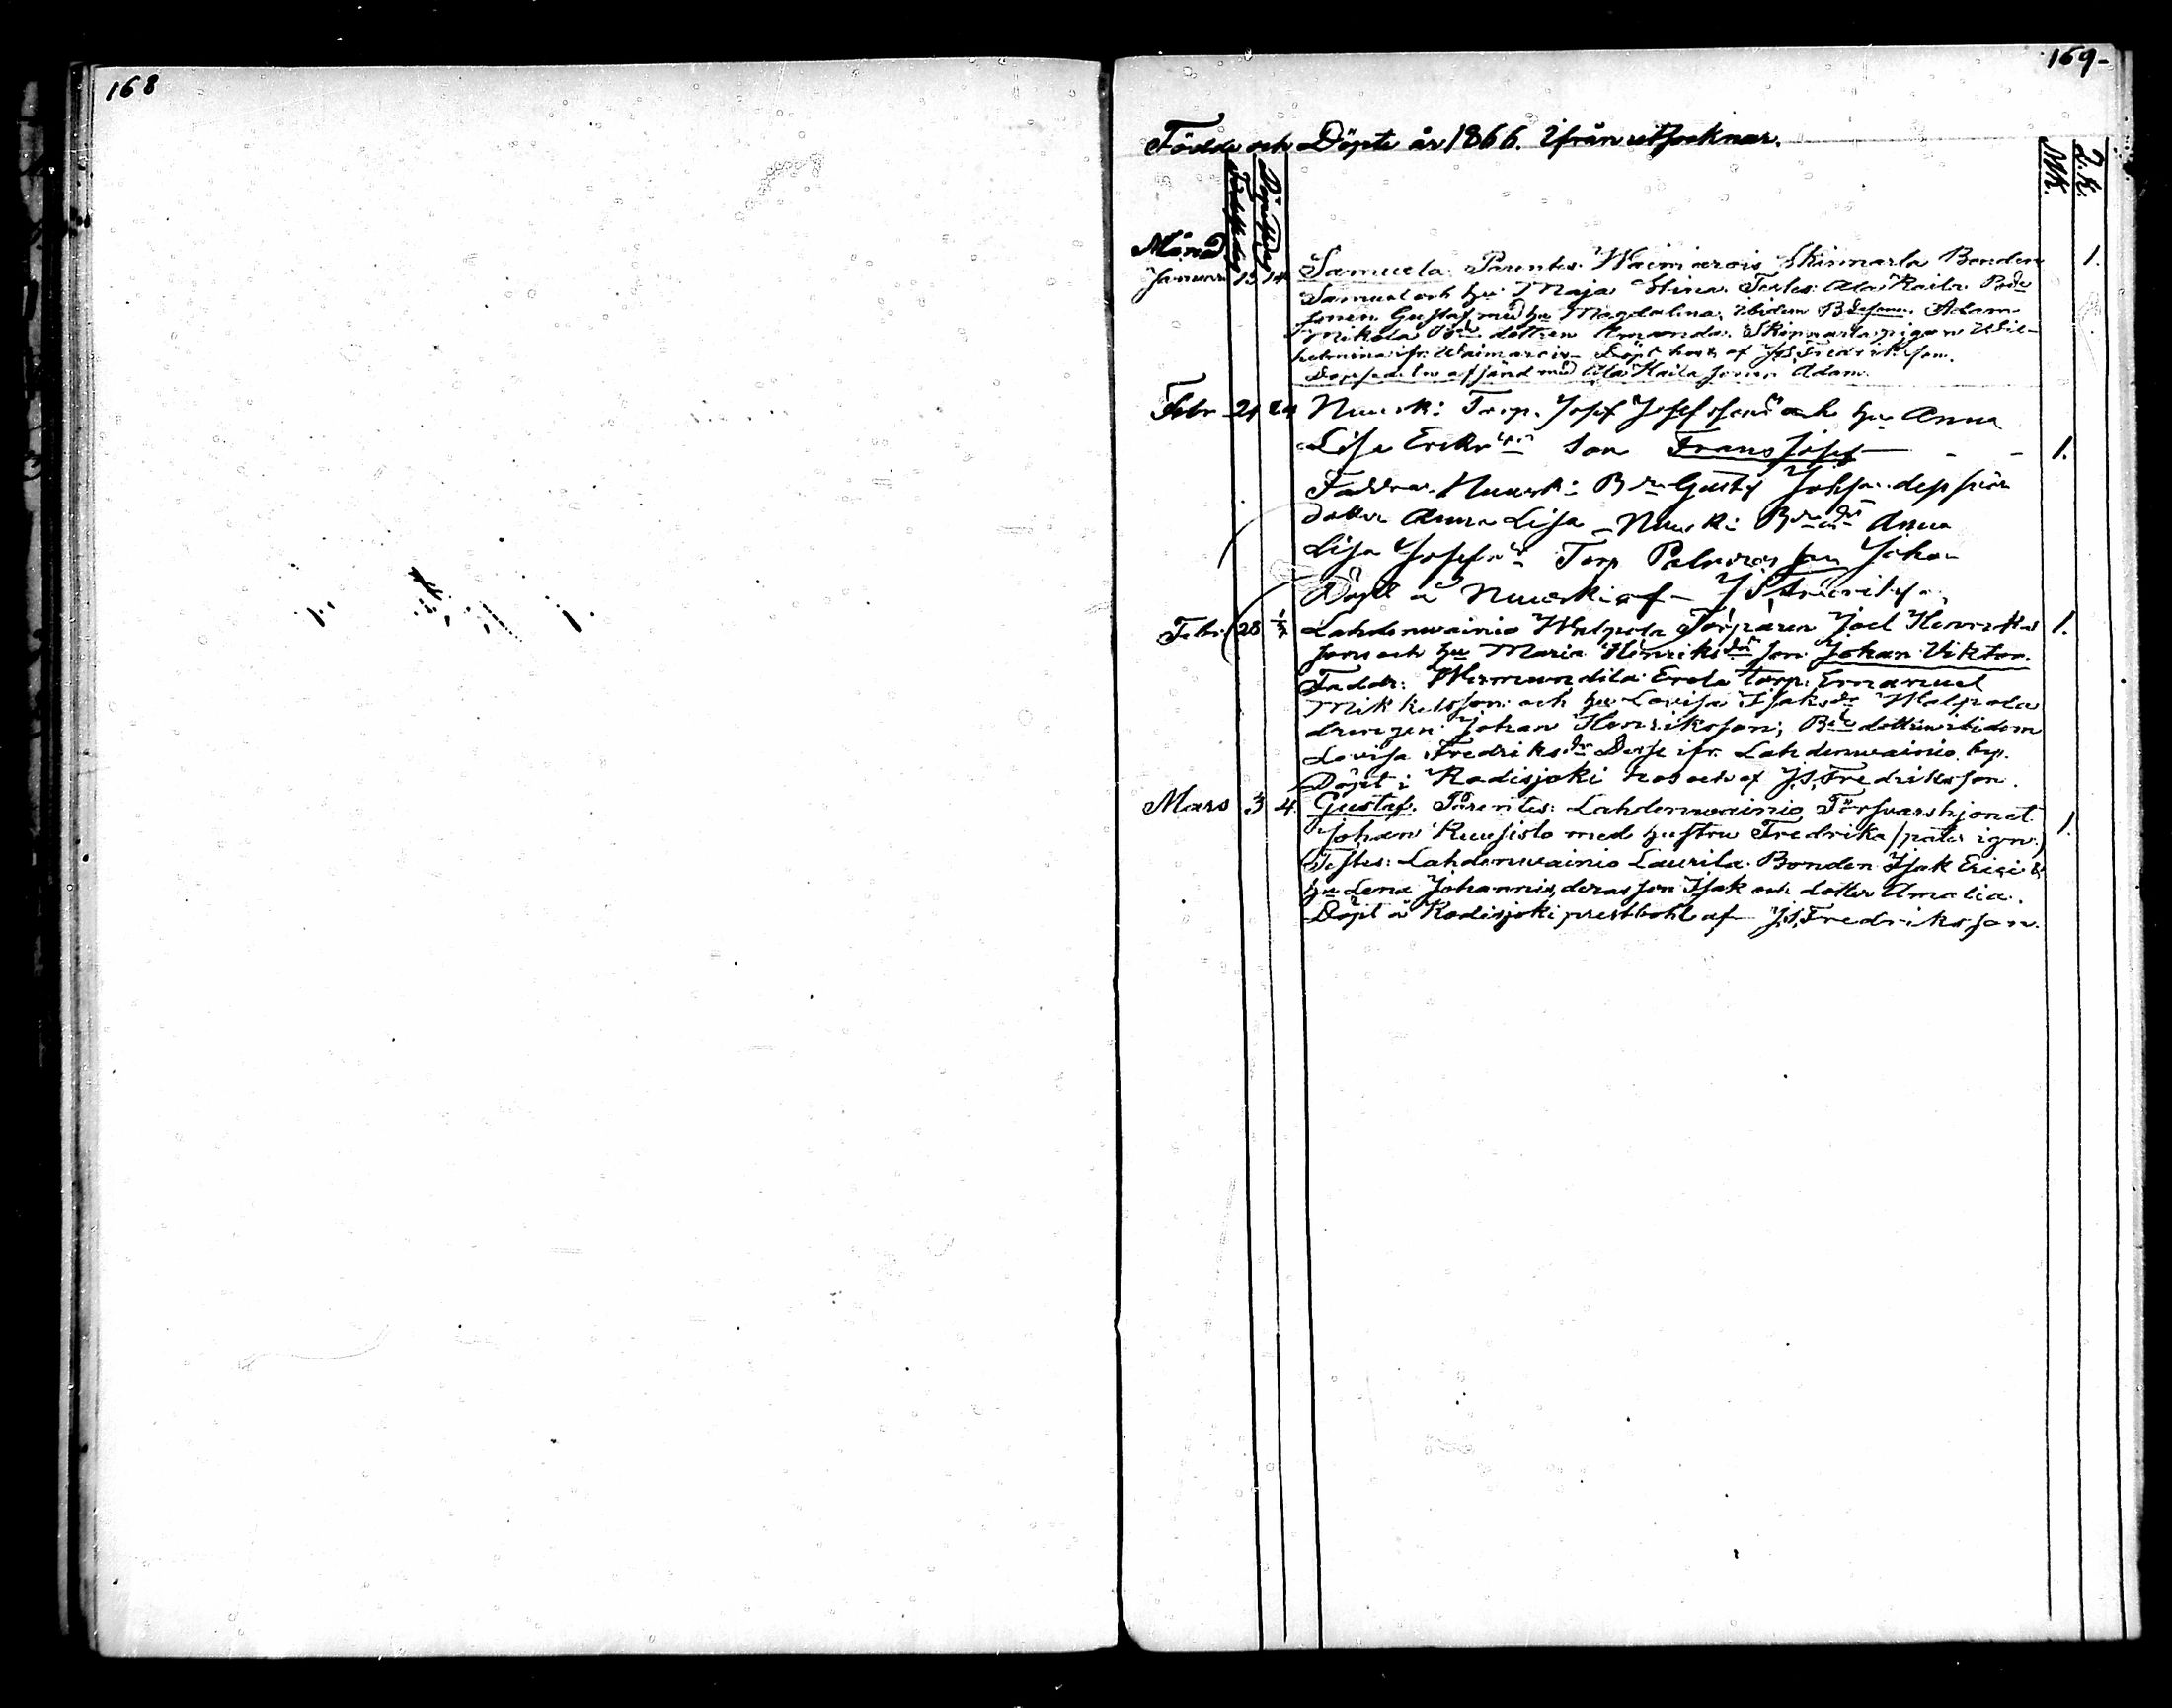 168
169-
Födde och Döpte år 1866. Ifrån utsocknar.
Månad
Födelsedag
Döpelsedag
MK.
Q.K.
Januari 13 14 Samuela. Parentes: Waimarois Skinnarla Bonden 1.
Samuel och hu Maja Stina. Testes: Ala Kaila Bde
sonen Gustaf med hu Magdalena, ibidem Bdesonen Adam
Mikola Bde dottren Amanda. Skinnarla pigan Wil-
helmina ifr. Waimarois Döpt af J.S. Fredriksson.
afsänd med Ala Kaila sonen Adam.
Febr 21 24 Nuuski Torp. Josef Josefsson och hu Anna
Lisa Eriksdr son Frans Josef - - 1.
Faddrar. Nuuski Gustaf
dotter Anna Lisa - Nuuski Anna
Lisa Josefsdr Torp son Johan
Döpt å Nuuski af J S Fredriksson
Febr. 28 Lahdenwainio Walpola Torparen Joel Henriks 1.
son och hu Maria Henriksdr son Johan Viktor.
Faddr: Wermundila Erola torp: Emanuel
Mikkelsson och hu Lovisa Isaksdr Walpola
drengen Johan Henriksson; Bde dottren ibidem
Lovisa Fredriksdr ifr. Lahdenwainio by.
Döpt i Kodisjoki hos och af J.S. Fredriksson.
Mars 3 4. Gustaf. Parentes: Lahdenwainio Försvarshjonet 1.
Johan Kuusisto med hustru Fredrika /pater ign./
Testes: Lahdenwainio Laurila Bonden Isak
hu Lena Johannis, deras son Isak och dotter Amalia.
Döpt å Kodisjoki prestbohl af J.S. Fredriksson.